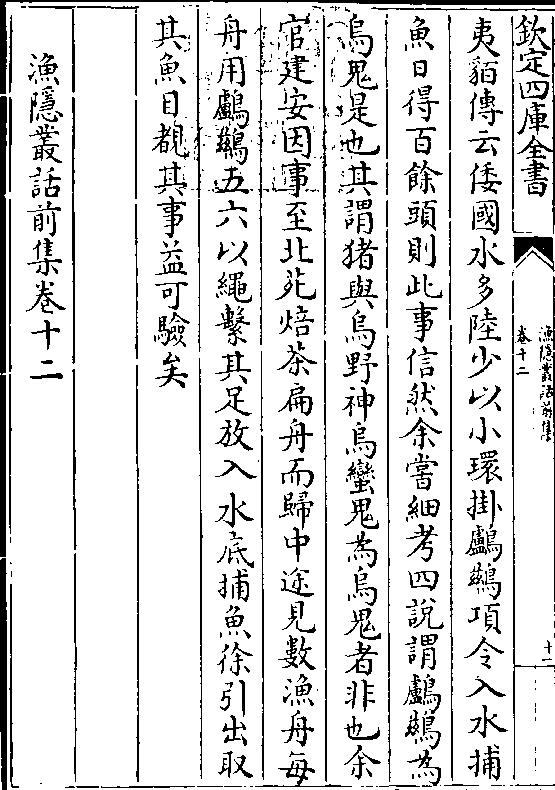 欽定四庫全書
漁隱叢話前集
卷十二
十二
夷貊傳云倭國水多陸少以小環掛鸕鷀項令入水捕
魚日得百餘頭則此事信然余嘗細考四說謂鸕鷀為
烏鬼是也其謂猪與烏野神烏蠻鬼為烏鬼者非也余
官建安因事至北苑焙茶扁舟而歸中途見數漁舟每
舟用鸕鷀五六以繩繫其足放入水底捕魚徐引出取
其魚目覩其事益可驗矣
漁隱叢話前集卷十二